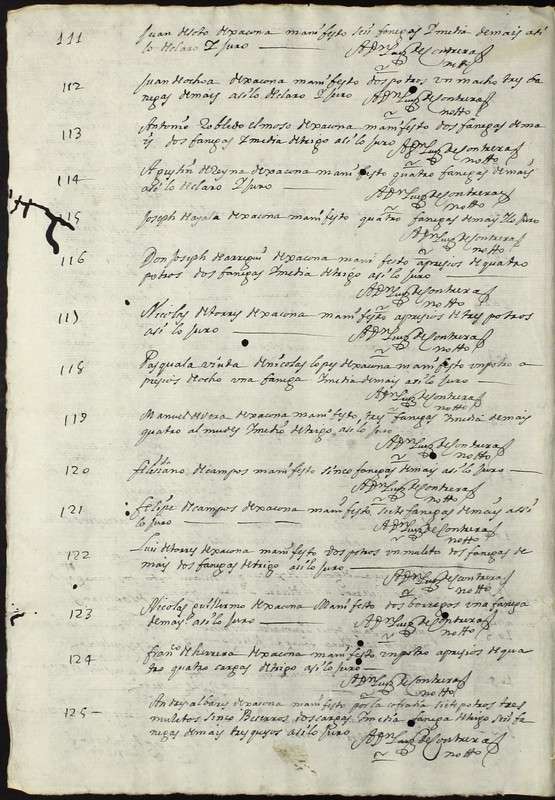 111 Juan de soto de xacona manifesto seis fanegas Y media de mais asi
lo declaro Y juro
Anttn Luiz de Contreras
notto
112 Juan de ochoa de xacona manifesto dos potros vn macho tres fa
negas de mais asi lo declaro Y juro Luiz de Contreras
notto
113 Antonio Robledo el moso de xacona manifesto dos fanegas de ma
is dos fanegas Y media de trigo asi lo juro Luiz de Contreras
notto
114 Agustin de Reyna de xacona manifesto quatro fanegas de mais
asi lo declaro Y juro Luiz de Contreras
notto
115 Joseph de ayala de xacona manifesto quatro fanegas de mais Y lo juro
Luiz de Contreras
notto
116 Don Joseph de xacona manifesto apresios de quatro
potros dos fanegas Y media de trigo asi lo juro
Luiz de Contreras
notto
117 Nicolas de torres de xacona manifesto apresios de tres potros
asi lo juro Luiz de Contreras
notto
118 Pasquala viuda de nicolas lopes de xacona manifesto vn potro a
presios de ocho vna fanega Y media de mais asi lo juro
Luiz de Contreras
notto
119 Manuel de vera de xacona manifesto tres fanegas Y media de mais
quatro almudes Y medio de trigo asi lo juro
Luiz de Contreras
notto
120 de campos manifesto sinco fanegas de mais asi lo juro
Luiz de Contreras
notto
121 Felipe de campos de xacona manifesto siete fanegas de mais assi
lo juro Luiz de Contreras
notto
122 Luis de torres de xacona manifesto dos potros vn mulito dos fanegas de
mais dos fanegas de trigo asi lo juro
Luiz de Contreras
notto
123 Nicolas guillermo de xacona Manifesto dos borregos vna fanega
de mais asi lo juro Luiz de Contreras
notto
124 franco de herrera de xacona manifesto vn potro apresios de qua
tro quatro cargas de trigo asi lo juro
Luiz de Contreras
notto
125 Andres alberes de xacona manifesto por la cofradia siete potros tres
muletos sinco Beserros dos cargas Y media fanega de trigo seis fa
negas de mais tres quesos asi lo juro Luiz de Contreras
notto